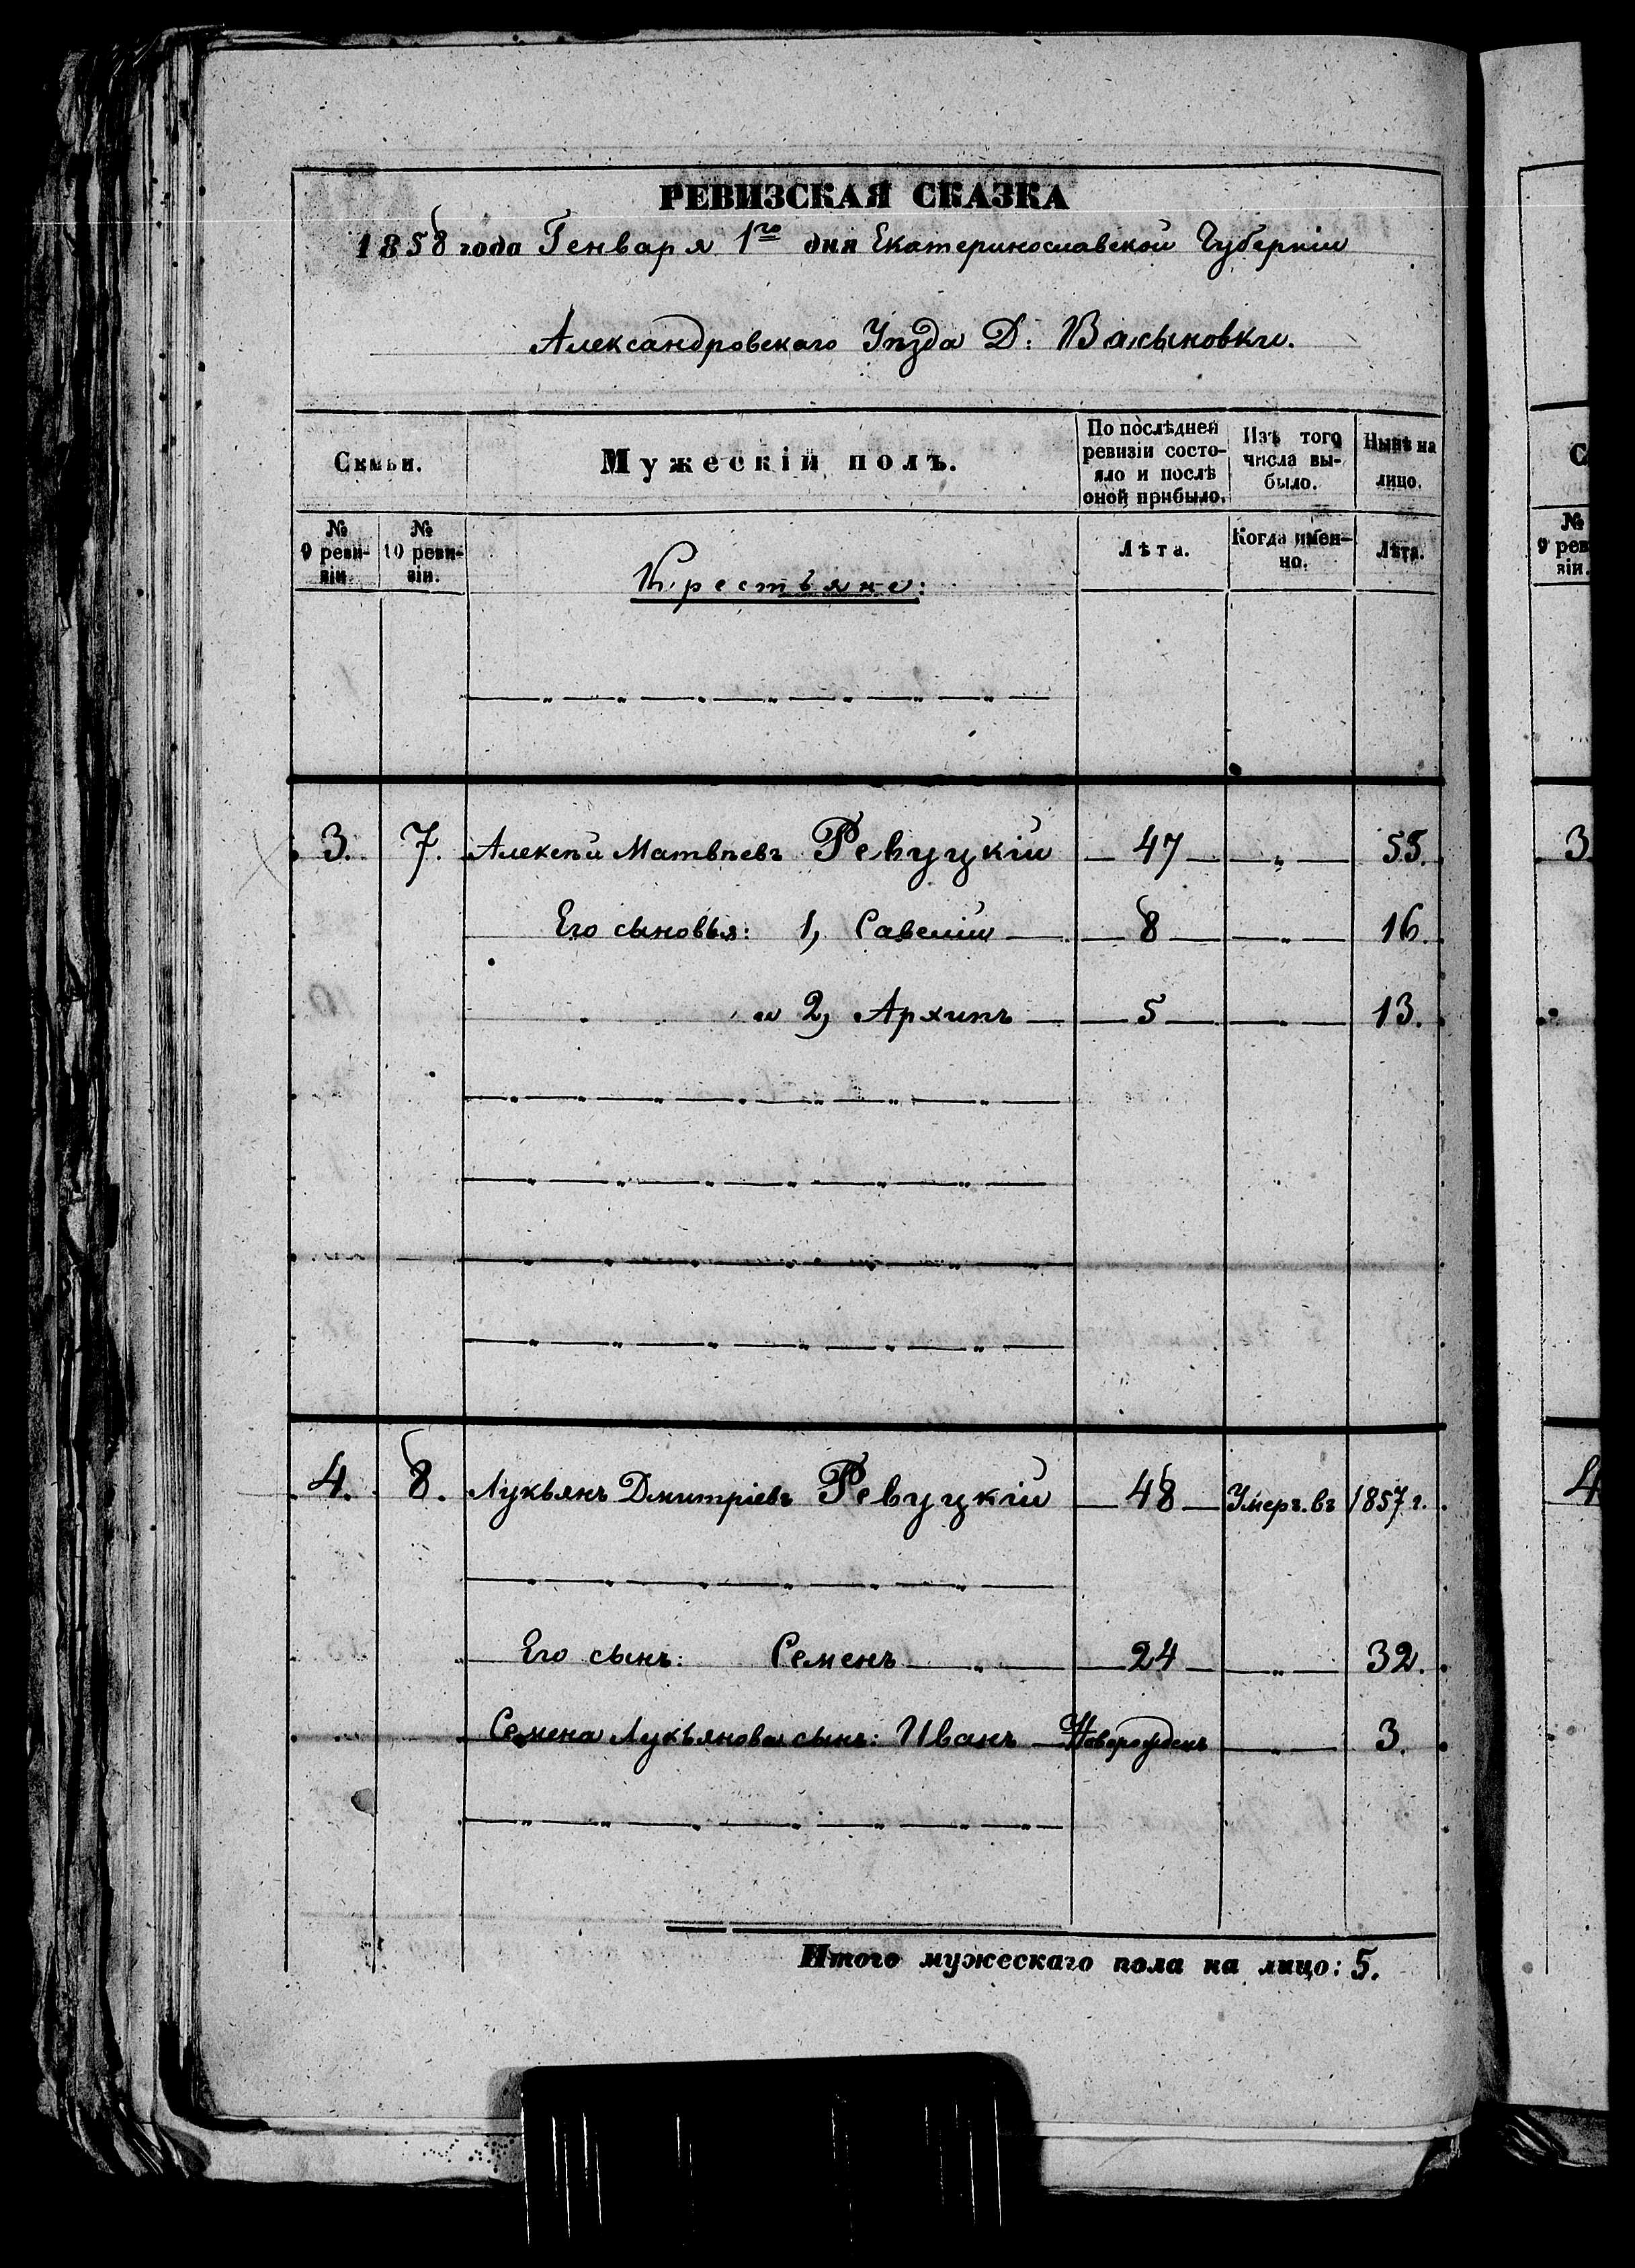 РЕВИЗСКАЯ СКАЗКА
1858 года Генваря 1го дня Екатеринославской Губерніи
Александровскаго Уѣзда Д:
Семьи.
Мужескій полъ.
По послѣдней ревизіи состояло и послѣ оной прибыло.
Изъ того числа выбыло.
Нынѣ на лицо.
№ 9 ревизіи.
№ 10 ревизіи.
Крестьяне:
Лѣта.
Когда именно.
Лѣта.
3. 7. Алексѣй Матвѣевъ Ревуцкій — 47 — „ — 55.
Его сыновья: 1, Савелій — 8 — „ — 16.
и 2, Архипъ — 5 — „ — 13.
4. 8. Лукьянъ Дмитріевъ Ревуцкій — 48 — Умеръ въ 1857 г.
Его сынъ: Семенъ — „ — 24 — „ — 32.
Семена Лукьянова сынъ: Иванъ — Новорожденъ — „ — 3.
Итого мужескаго пола на лицо: 5.
С
№ 9 рев
зіи.
3
4